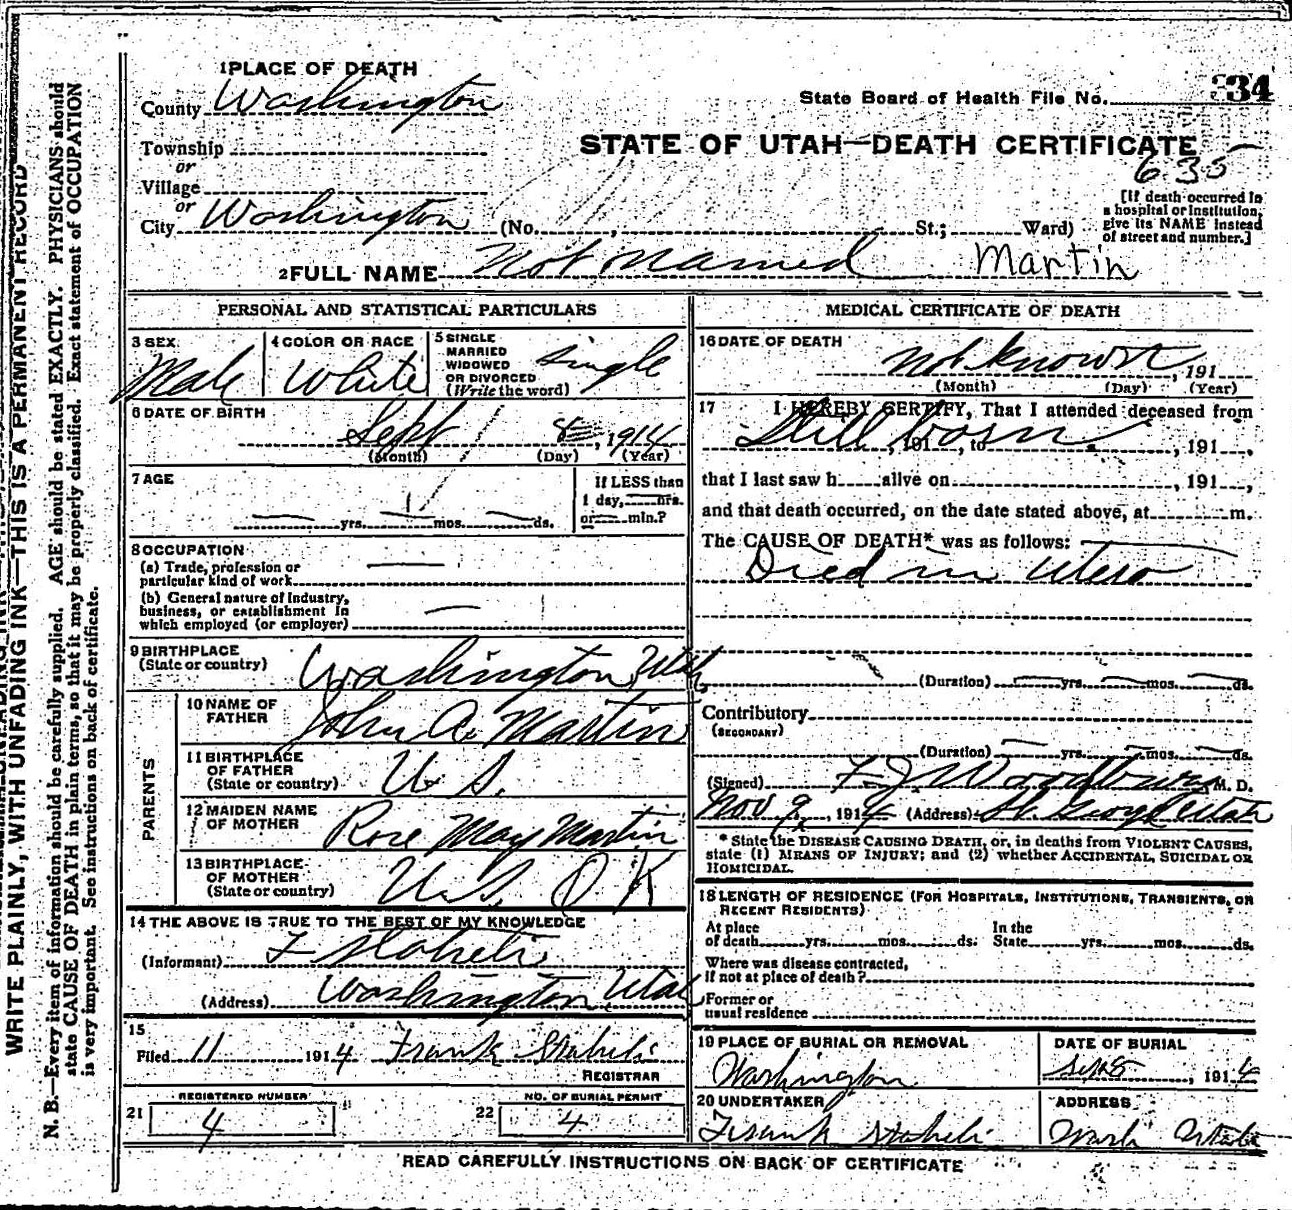 WRITE PLAINLY, WITH UNFADING INK—THIS IS A PERMANENT RECORD
N. B.—Every item of information should be carefully supplied. AGE should be stated EXACTLY. PHYSICIANS should
state CAUSE OF DEATH in plain terms, so that it may be properly classified. Exact statement of OCCUPATION
is very important. See instructions on back of certificate.
1 PLACE OF DEATH
County Washington
State Board of Health File No. 34
STATE OF UTAH—DEATH CERTIFICATE
635
Township
or
Village
or
City Washington (No. , St.; Ward)
[If death occurred in
a hospital or institution,
give its NAME instead
of street and number.]
2 FULL NAME Not Named Martin
PERSONAL AND STATISTICAL PARTICULARS
3 SEX
Male
4 COLOR OR RACE
White
5 SINGLE
MARRIED
WIDOWED
OR DIVORCED
(Write the word)
Single
6 DATE OF BIRTH
Sept 8, 1914
(Month) (Day) (Year)
7 AGE
yrs. mos. ds.
If LESS than
1 day, hrs.
or min.?
8 OCCUPATION
(a) Trade, profession or
particular kind of work
(b) General nature of Industry,
business, or establishment in
which employed (or employer)
9 BIRTHPLACE
(State or country)
Washington Utah
PARENTS
10 NAME OF
FATHER
John A. Martin
11 BIRTHPLACE
OF FATHER
(State or country)
U. S.
12 MAIDEN NAME
OF MOTHER
Rose May Martin
13 BIRTHPLACE
OF MOTHER
(State or country)
U.S. OK
14 THE ABOVE IS TRUE TO THE BEST OF MY KNOWLEDGE
(Informant) F Staheli
(Address) Washington Utah
15
Filed 11 1914 Frank Staheli
REGISTRAR
21 REGISTERED NUMBER
4
22 NO. OF BURIAL PERMIT
4
MEDICAL CERTIFICATE OF DEATH
16 DATE OF DEATH
not known, 191
(Month) (Day) (Year)
17 I HEREBY CERTIFY, That I attended deceased from
Still born, 191 , to , 191 ,
that I last saw h alive on , 191 ,
and that death occurred, on the date stated above, at m.
The CAUSE OF DEATH* was as follows:
Died in utero
(Duration) yrs. mos. ds.
Contributory
(SECONDARY)
(Duration) yrs. mos. ds.
(Signed) F J Woodbury M. D.
Nov 9, 1914 (Address) St. George Utah
* State the DISEASE CAUSING DEATH, or, in deaths from VIOLENT CAUSES,
state (1) MEANS OF INJURY; and (2) whether ACCIDENTAL, SUICIDAL OR
HOMICIDAL.
18 LENGTH OF RESIDENCE (FOR HOSPITALS, INSTITUTIONS, TRANSIENTS, OR
RECENT RESIDENTS)
At place
of death yrs. mos. ds.
In the
State yrs. mos. ds.
Where was disease contracted,
if not at place of death?
Former or
usual residence
19 PLACE OF BURIAL OR REMOVAL
Washington
DATE OF BURIAL
Sept 8, 1914
20 UNDERTAKER
Frank Staheli
ADDRESS
Wash Utah
READ CAREFULLY INSTRUCTIONS ON BACK OF CERTIFICATE